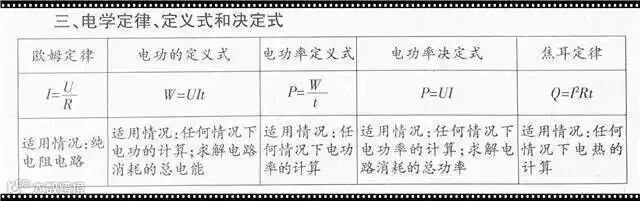 三、电学定律、定义式和决定式
欧姆定律 电功的定义式 电功率定义式 电功率决定式 焦耳定律
I=U/R W=UIt P=W/t P=UI Q=I²Rt
适用情况:纯电阻电路
适用情况:任何情况下电功的计算;求解电路消耗的总电能
适用情况:任何情况下电功率的计算
适用情况:任何情况下电功率的计算;求解电路消耗的总功率
适用情况:任何情况下电热的计算